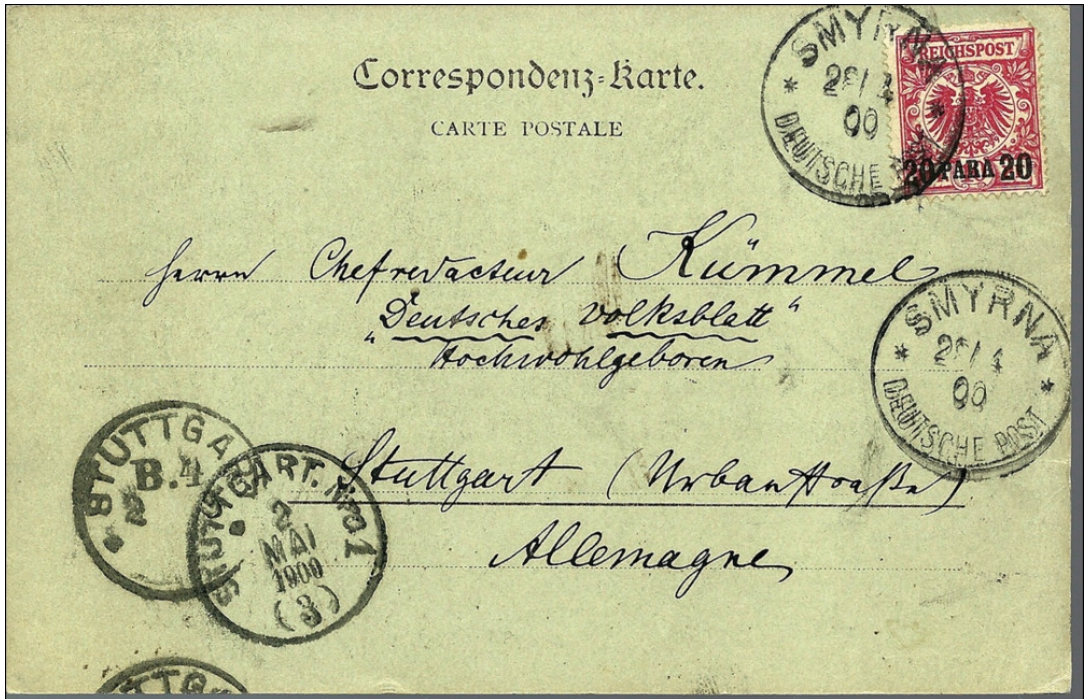 Correspondenz-Karte.
CARTE POSTALE
REICHSPOST
20 PARA 20
SMYRNA
00
DEUTSCHE
Herrn Chefredacteur Kümmel
„Deutsches Volksblatt“
Hochwohlgeboren
SMYRNA
00
DEUTSCHE POST
Stuttgart (Urbanstraße)
Allemagne
STUTTGART
B.4
2
STUTTGART. No. 1
2
MAI
1900
(3)